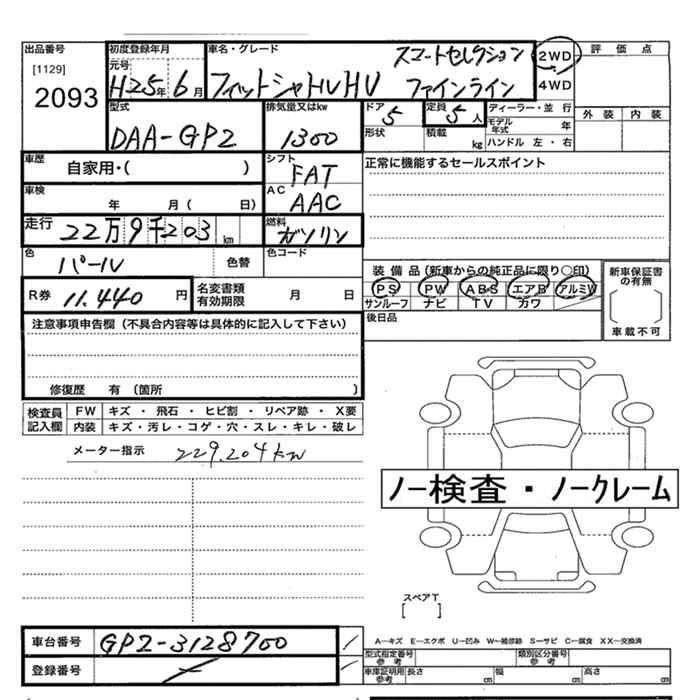 出品番号
[1129]
2093
初度登録年月
元号
H25年 6月
車名・グレード
スマートセレクション
フィットシャトルHV ファインライン
2WD
4WD
評価点
外装 内装
型式
DAA-GP2
排気量又はkw
1300
ドア 5
形状
定員 5人
積載 kg
ディーラー・並行
モデル年式 年
ハンドル 左・右
車歴
自家用・( )
シフト
FAT
車検
年 月( 日)
AC
AAC
正常に機能するセールスポイント
走行
22万9千203km
燃料
ガソリン
色
パール
色替
色コード
装備品(新車からの純正品に限り○印)
PS PW ABS エアB アルミW
サンルーフ ナビ TV カワ
後日品
新車保証書の有無
車載不可
R券 11,440 円
名変書類有効期限 月 日
注意事項申告欄(不具合内容等は具体的に記入して下さい)
修復歴 有 (箇所 )
検査員記入欄
FW キズ・飛石・ヒビ割・リペア跡・X要
内装 キズ・汚レ・コゲ・穴・スレ・キレ・破レ
メーター指示 229,204km
ノー検査・ノークレーム
スペアT
[ ]
車台番号 GP2-3128700
登録番号
A―キズ E―エクボ U―凹み W―補修跡 S―サビ C―腐食 XX―交換済
型式指定番号 参考
類別区分番号 参考
車庫証明用 参考 長さ cm 幅 cm 高さ cm